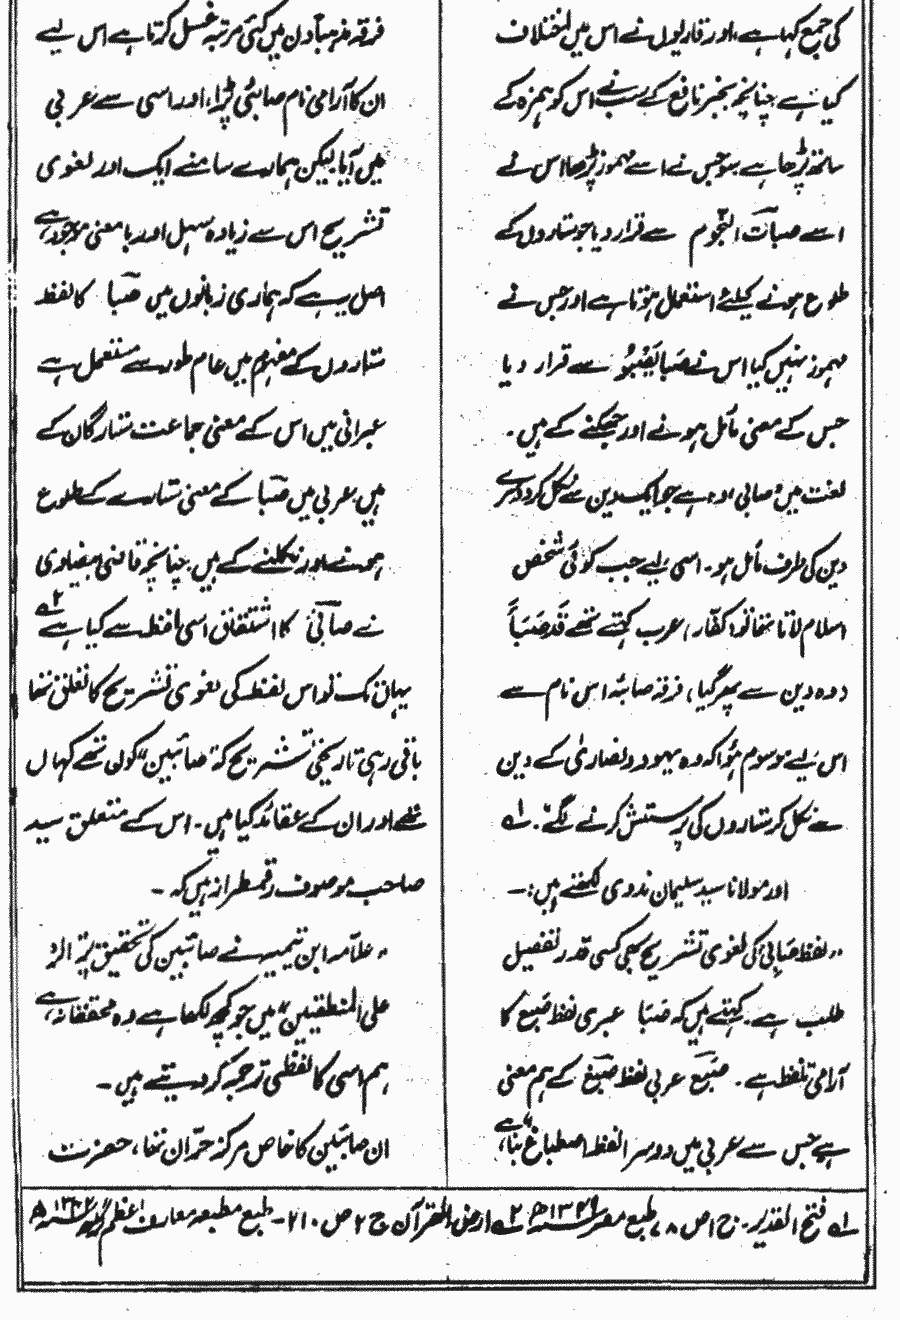 کی جمع کہا ہے، اور قاریوں نے اس میں اختلاف
کیا ہے چنانچہ بجز نافع کے سب نے اس کو ہمزہ کے
ساتھ پڑھا ہے سو جس نے اسے مہموز پڑھا اس نے
اسے صبأت النجوم سے قرار دیا جو ستاروں کے
طلوع ہونے کیلئے استعمال ہوتا ہے اور جس نے
مہموز نہیں کیا اس نے صَبَا یَصْبُو سے قرار دیا
جس کے معنی مائل ہونے اور جھکنے کے ہیں۔
لغت میں صابی اسے جو ایک دین سے نکل کر دوسرے
دین کی طرف مائل ہو۔ اسی لیے جب کوئی شخص
اسلام لاتا تھا تو کفار عرب کہتے تھے قَد صَبَأَ
وہ دین سے پھر گیا، فرقہ صابئہ اس نام سے
اس لیے موسوم ہوا کہ وہ یہود و نصاریٰ کے دین
سے نکل کر ستاروں کی پرستش کرنے لگے۔ ۱؎
اور مولانا سید سلیمان ندوی لکھتے ہیں:۔
"لفظ صَابی کی لغوی تشریح بھی کسی قدر تفصیل
طلب ہے۔ کہتے ہیں کہ صَبَا عبری لفظ صبع کا
آرامی تلفظ ہے۔ صبع عربی لفظ صبغ کے ہم معنی
ہے جس سے عربی میں دوسرا لفظ اصطباغ بنا ہے،
فرقہ مندمبآدن میں کئی مرتبہ غسل کرتا ہے اس لیے
ان کا آرامی نام صابئی پڑا، اور اسی سے عربی
میں آیا لیکن ہمارے سامنے ایک اور لغوی
تشریح اس سے زیادہ سہل اور بامعنی موجود ہے،
اصل یہ ہے کہ ہماری زبانوں میں صبا کا لفظ
ستاروں کے مفہوم میں عام طور سے مستعمل ہے
عبرانی میں اس کے معنی جماعت ستارگان کے
ہیں، عربی میں صبا کے معنی ستارے کے طلوع
ہونے اور نکلنے کے ہیں چنانچہ قاضی بیضاوی
نے صابئ کا اشتقاق اسی لفظ سے کیا ہے ۲؎
یہاں تک تو اس لفظ کی لغوی تشریح کا تعلق تھا
باقی رہی تاریخی تشریح کہ "صائبین" کون تھے کہاں
تھے اور ان کے عقائد کیا ہیں۔ اس کے متعلق سید
صاحب موصوف رقمطراز ہیں کہ ۔
"علامہ ابن تیمیہ نے صائبین کی تحقیق پر الرد
علی المنطقیین" میں جو کچھ لکھا ہے وہ محققانہ ہے،
ہم اسی کا لفظی ترجمہ کر دیتے ہیں ۔
ان صابئین کا خاص مرکز حرّان تھا، حضرت
۱؎ فتح القدیر۔ ج ۱ ص ۸، طبع مصر ۱۳۴۹ھ ۲؎ ارض القرآن ج ۲ ص ۲۱۰۔ طبع مطبعہ معارف اعظم گڑھ ۱۳۴۲ھ